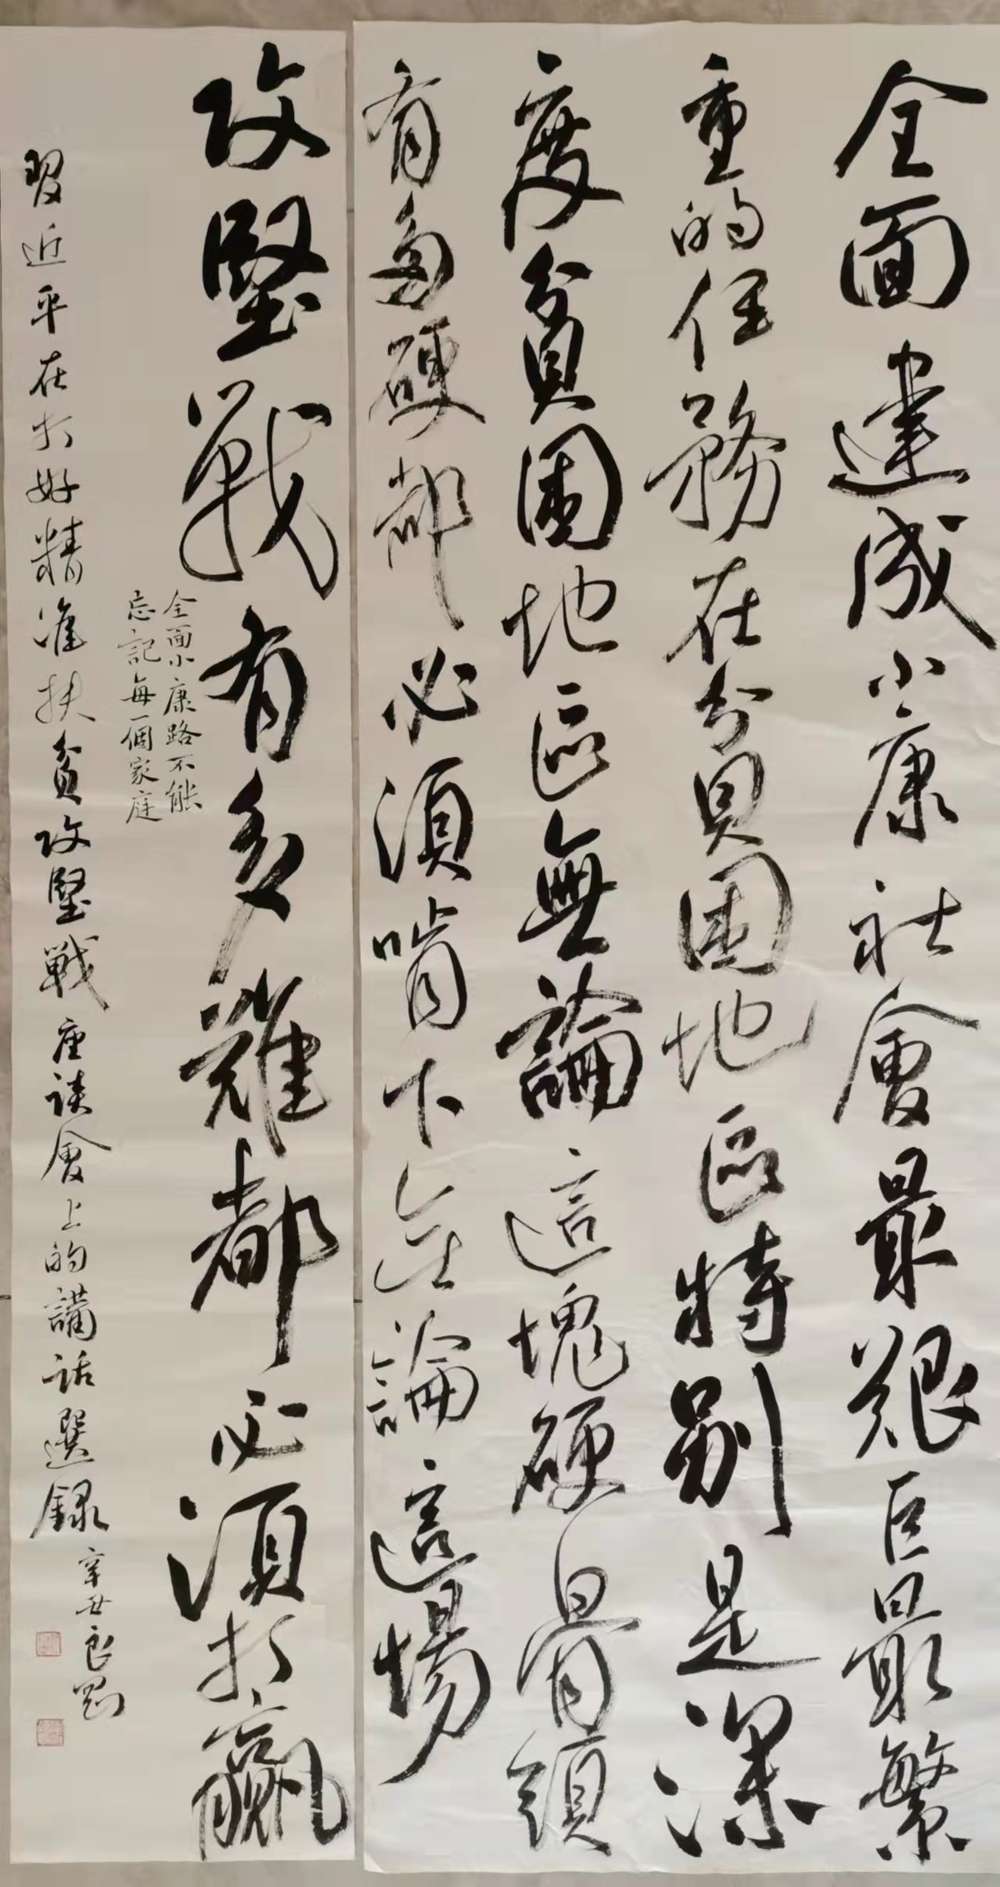 全面建成小康社會最艱巨最繁
重的任務在貧困地區特別是深
度貧困地區無論這塊硬骨頭
有多硬都必須啃下無論這場
攻堅戰有多難都必須打贏
全面小康路不能
忘記每一個家庭
習近平在打好精準扶貧攻堅戰座談會上的講話選錄
辛丑